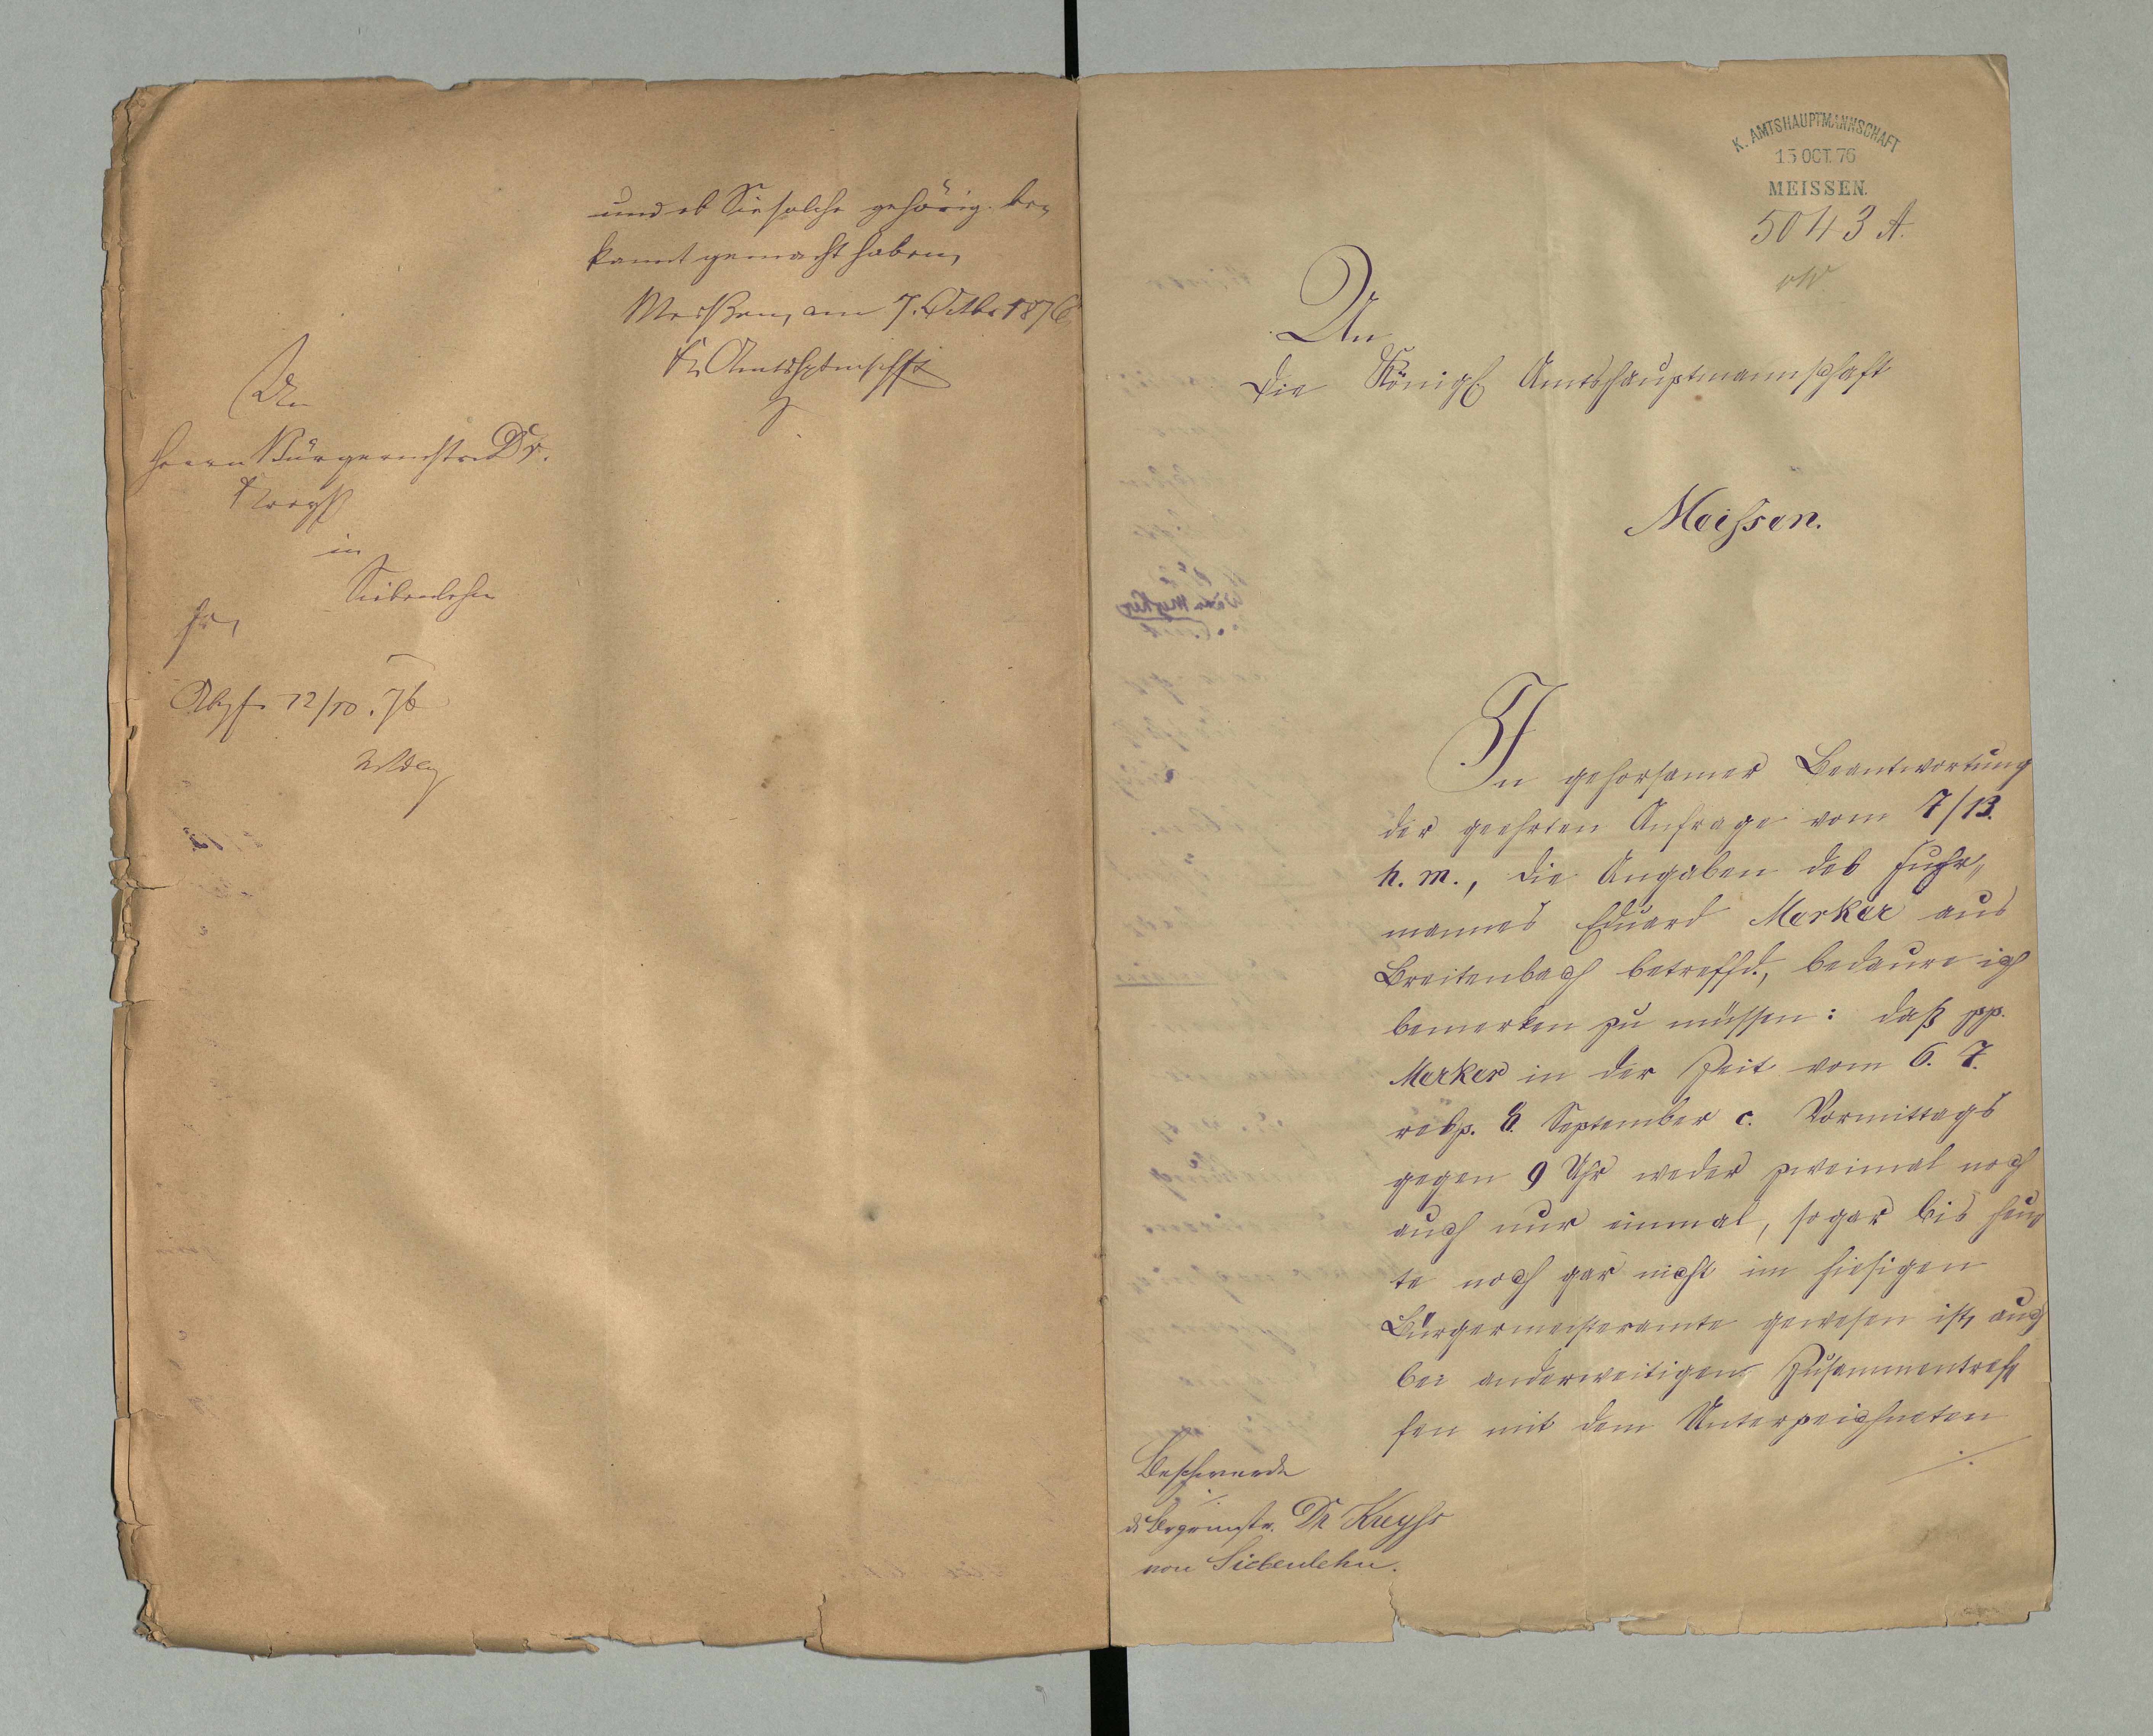 und ob Sie solche gehörig be-
kannt gemacht haben,
Meißen, am 7. Octbr 1876
K. Amtshptmschft
An
Herrn Bürgermstr Dr.
Kreyß
in
Siebenlehn
Abgs. 12/10. 76
K. AMTSHAUPTMANNSCHAFT
13 OCT. 76
MEISSEN.
5043 A.
An
die Königl. Amtshauptmannschaft
Meissen.
In gehorsamer Beantwortung
der geehrten Anfrage vom 7/13.
h. m., die Angaben des Fuhr-
mannes Eduard Merker aus
Breitenbach betreffd., bedaure ich
bemerken zu müssen: daß pp.
Merker in der Zeit vom 6. 7.
resp. 8. September c. Vormittags
gegen 9 Uhr weder zweimal noch
auch nur einmal, sogar bis heu-
te noch gar nicht im hiesigen
Bürgermeisteramte gewesen ist, auch
bei anderweitigen Zusammentref-
fen mit dem Unterzeichneten
./.
Beschwerde
./.
d. Brgrmstr. Dr Kreyß
von Siebenlehn.